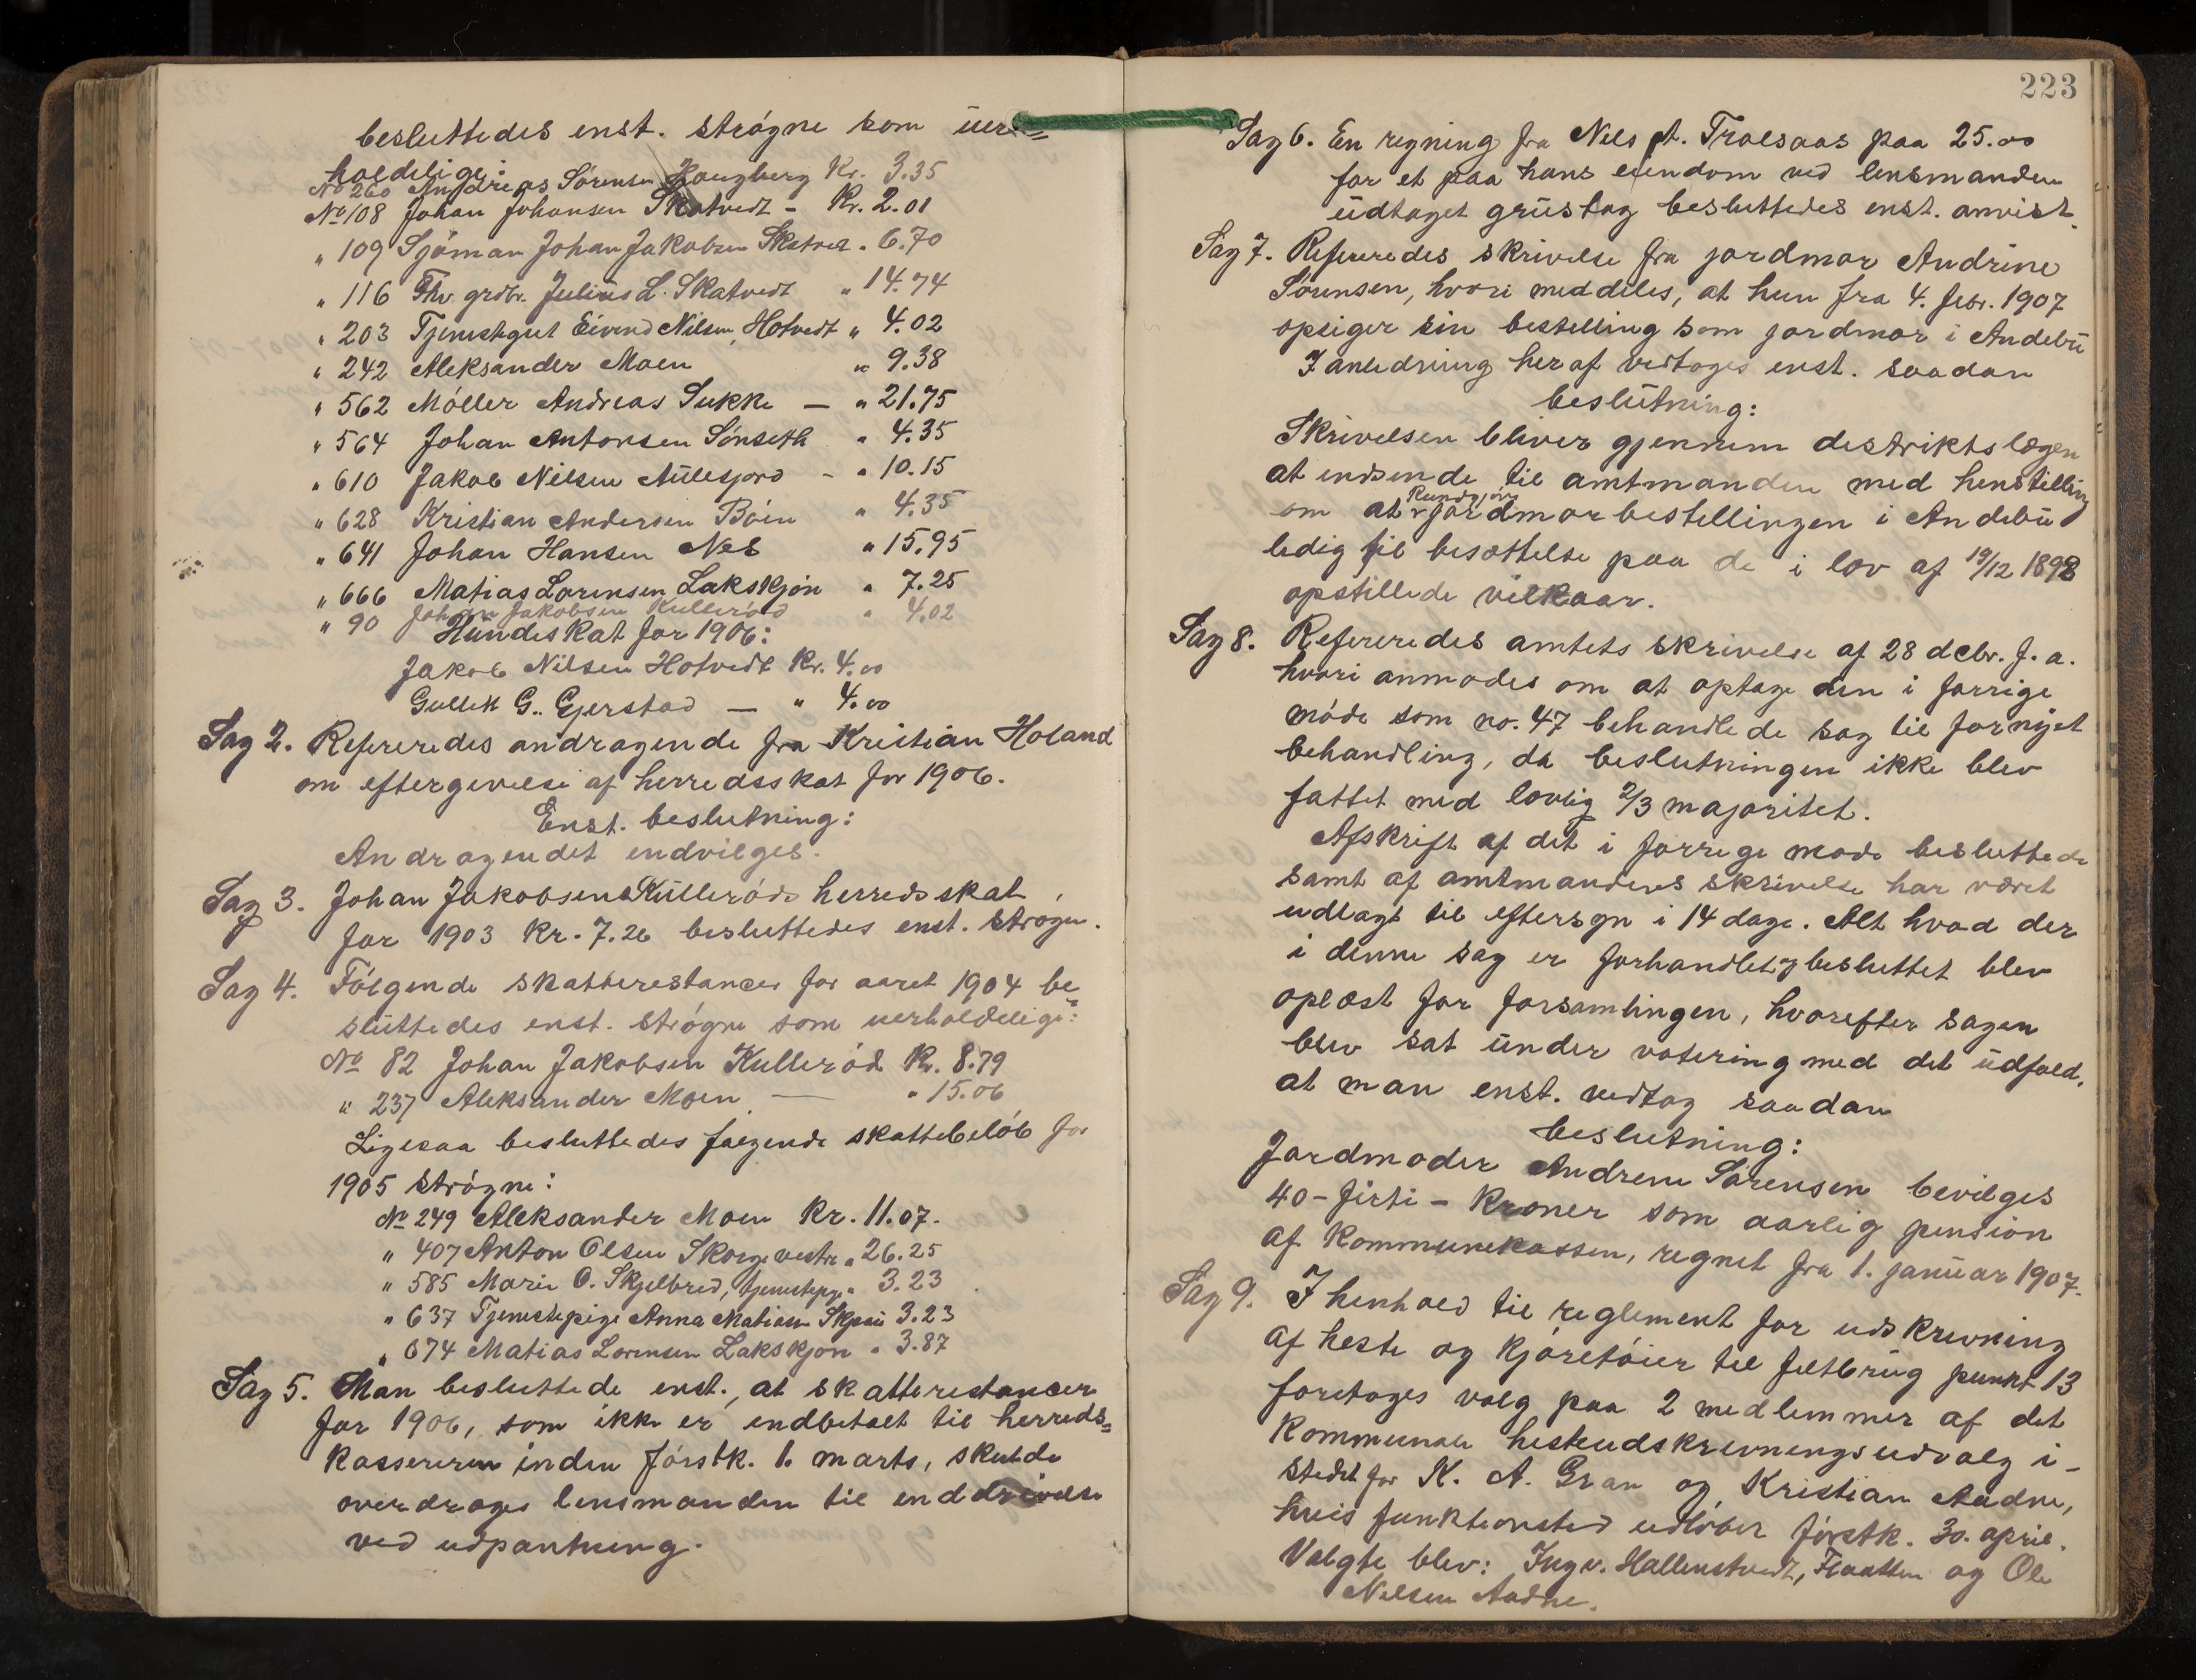 besluttedes enst. strøgne som uer=
holdelige:
No 260 Andreas Sørensen Haugberg Kr. 3.35
No 108 Johan Johansen Skatvedt - Kr. 2.01
" 109 Sjøman Johan Jakobsen Skatvedt " 6.70
" 116 Fhv. grdbr. Julius L. Skatvedt " 14.74
" 203 Tjenestegut Eivend Nilsen, Hotvedt " 4.02
" 242 Aleksander Moen " 9.38
" 562 Møller Andreas Sukke — " 21.75
" 564 Johan Antonsen Sønseth " 4.35
" 610 Jakob Nilsen Aulesjord - " 10.15
" 628 Kristian Andersen Bøen " 4.35
" 641 Johan Hansen Nes " 15.95
" 666 Matias Lorensen Lakskjøn " 7.25
" 90 Johan Jakobsen Kullerød " 4.02
Hundeskat for 1906:
Jakob Nilsen Hotvedt Kr. 4.00
Gullik G. Gjerstad — " 4.00
Sag 2. Refereredes andragende fra Kristian Holand
om eftergivelse af herredsskat for 1906.
Enst. beslutning:
Andragendet indvilges.
Sag 3. Johan Jakobsens Kullerøds herredsskat
for 1903 Kr. 7.26 besluttedes enst. strøgen.
Sag 4. Følgende skatterestancer for aaret 1904 be=
sluttedes enst. strøgne som uerholdelige:
No 82 Johan Jakobsen Kullerød Kr. 8.79
" 237 Aleksander Moen — " 15.06
Ligesaa besluttedes følgende skattebeløb for
1905 strøgne:
No 249 Aleksander Moen Kr. 11.07.
" 407 Anton Olsen Skorge vestre " 26.25
" 585 Marie O. Skjelbred, tjenestepg. " 3.23
" 637 Tjenestepige Anna Matisen 3.23
" 674 Matias Lorensen Lakskjøn " 3.87
Sag 5. Man besluttede enst., at skatterestancer
for 1906, som ikke er indbetalt til herreds=
kassereren inden førstk. 1. marts, skulde
overdrages lensmanden til inddrivelse
ved udpantning.
223
Sag 6. En regning fra Nels A. Trolsaas paa 25.00
for et paa hans eiendom ved lensmanden
udtaget grustag besluttedes enst. anvist.
Sag 7. Refereredes skrivelse fra jordmor Andrine
Sørensen, hvori meddeles, at hun fra 4. febr. 1907
opsiger sin bestelling som jordmor i Andebu
I anledning heraf vedtoges enst. saadan
beslutning:
Skrivelsen bliver gjennem distriktslægen
at indsende til amtmanden med henstilling
om at kundgjøre jordmorbestellingen i Andebu
ledig til besættelse paa de i lov af 19/12 1898
opstillede vilkaar.
Sag 8. Refereredes amtets skrivelse af 28 dcbr. f. a.
hvori anmodes om at optage den i forrige
møde som no. 47 behandlede sag til fornyet
behandling, da beslutningen ikke blev
fattet med lovlig 2/3 majoritet.
Afskrift af det i forrige møde besluttede
samt af amtmandens skrivelse har været
udlagt til eftersyn i 14 dage. Alt hvad der
i denne sag er forhandlet og besluttet blev
oplæst for forsamlingen, hvorefter sagen
blev sat under votering med det udfald,
at man enst. vedtog saadan
beslutning:
Jordmoder Andrene Sørensen bevilges
40 - førti - kroner som aarlig pension
af kommunekassen, regnet fra 1. januar 1907.
Sag 9. I henhold til reglement for udskrivning
af heste og kjøretøier til feltbrug punkt 13
foretoges valg paa 2 medlemmer af det
kommunale hesteudskrivningsudvalg i-
stedet for K. A. Gran og Kristian Aadne,
hvis funktionstid udløber førstk. 30. april.
Valgte blev: Ingv. Hallenstvedt, Flaatten og Ole
Nilsen Aadne.